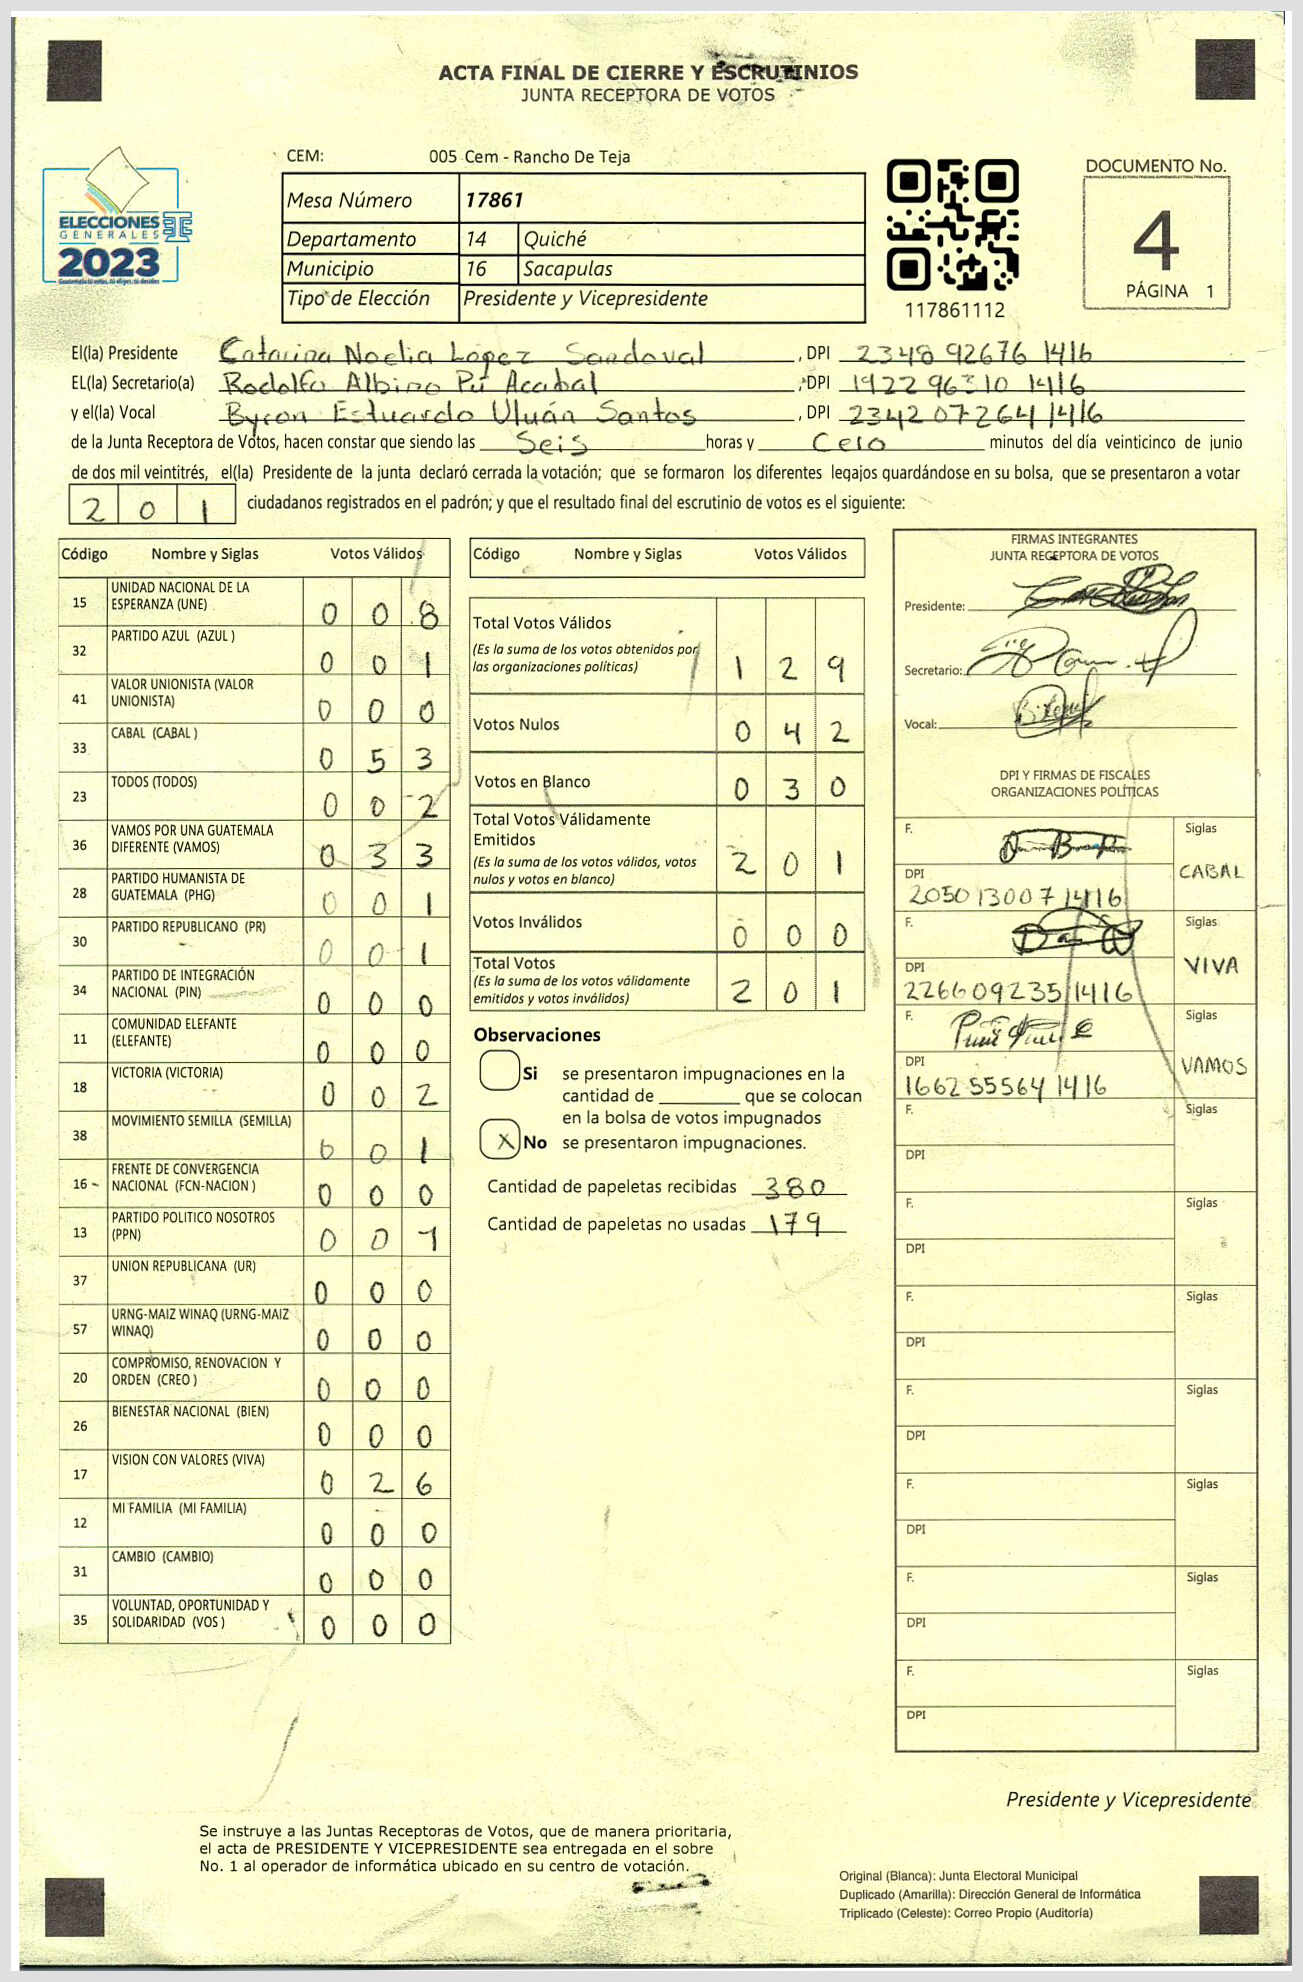 ACTA FINAL DE CIERRE Y ESCRUTINIOS
JUNTA RECEPTORA DE VOTOS
CEM: 005 Cem - Rancho De Teja
ELECCIONES
GENERALES
2023
Mesa Número 17861
Departamento 14 Quiché
Municipio 16 Sacapulas
Tipo de Elección Presidente y Vicepresidente
117861112
DOCUMENTO No.
4
PÁGINA 1
El(la) Presidente Catarina Noelia López Sandoval, DPI 2348 92676 1416
EL(la) Secretario(a) Rodolfo Albino Pú Acabal, DPI 1922 96310 1416
y el(la) Vocal Byron Estuardo Uluán Santos, DPI 2342 07264 1416
de la Junta Receptora de Votos, hacen constar que siendo las Seis horas y Cero minutos del día veinticinco de junio
de dos mil veintitrés, el(la) Presidente de la junta declaró cerrada la votación; que se formaron los diferentes legajos guardándose en su bolsa, que se presentaron a votar
2 0 1 ciudadanos registrados en el padrón; y que el resultado final del escrutinio de votos es el siguiente:
Código Nombre y Siglas Votos Válidos
15 UNIDAD NACIONAL DE LA ESPERANZA (UNE) 0 0 8
32 PARTIDO AZUL (AZUL ) 0 0 1
41 VALOR UNIONISTA (VALOR UNIONISTA) 0 0 0
33 CABAL (CABAL ) 0 5 3
23 TODOS (TODOS) 0 0 2
36 VAMOS POR UNA GUATEMALA DIFERENTE (VAMOS) 0 3 3
28 PARTIDO HUMANISTA DE GUATEMALA (PHG) 0 0 1
30 PARTIDO REPUBLICANO (PR) 0 0 1
34 PARTIDO DE INTEGRACIÓN NACIONAL (PIN) 0 0 0
11 COMUNIDAD ELEFANTE (ELEFANTE) 0 0 0
18 VICTORIA (VICTORIA) 0 0 2
38 MOVIMIENTO SEMILLA (SEMILLA) 0 0 1
16 FRENTE DE CONVERGENCIA NACIONAL (FCN-NACION ) 0 0 0
13 PARTIDO POLITICO NOSOTROS (PPN) 0 0 1
37 UNION REPUBLICANA (UR) 0 0 0
57 URNG-MAIZ WINAQ (URNG-MAIZ WINAQ) 0 0 0
20 COMPROMISO, RENOVACION Y ORDEN (CREO ) 0 0 0
26 BIENESTAR NACIONAL (BIEN) 0 0 0
17 VISION CON VALORES (VIVA) 0 2 6
12 MI FAMILIA (MI FAMILIA) 0 0 0
31 CAMBIO (CAMBIO) 0 0 0
35 VOLUNTAD, OPORTUNIDAD Y SOLIDARIDAD (VOS ) 0 0 0
Código Nombre y Siglas Votos Válidos
Total Votos Válidos 1 2 9
(Es la suma de los votos obtenidos por
las organizaciones políticas)
Votos Nulos 0 4 2
Votos en Blanco 0 3 0
Total Votos Válidamente
Emitidos 2 0 1
(Es la suma de los votos válidos, votos
nulos y votos en blanco)
Votos Inválidos 0 0 0
Total Votos 2 0 1
(Es la suma de los votos válidamente
emitidos y votos inválidos)
Observaciones
Si se presentaron impugnaciones en la
cantidad de ________ que se colocan
en la bolsa de votos impugnados
X No se presentaron impugnaciones.
Cantidad de papeletas recibidas 380
Cantidad de papeletas no usadas 179
FIRMAS INTEGRANTES
JUNTA RECEPTORA DE VOTOS
Presidente:
Secretario:
Vocal:
DPI Y FIRMAS DE FISCALES
ORGANIZACIONES POLÍTICAS
F. Siglas
CABAL
DPI
2050 13007 1416
F. Siglas
VIVA
DPI
2266 09235 1416
F. Siglas
VAMOS
DPI
1662 55564 1416
F. Siglas
DPI
F. Siglas
DPI
F. Siglas
DPI
F. Siglas
DPI
F. Siglas
DPI
F. Siglas
DPI
F. Siglas
DPI
Presidente y Vicepresidente
Se instruye a las Juntas Receptoras de Votos, que de manera prioritaria,
el acta de PRESIDENTE Y VICEPRESIDENTE sea entregada en el sobre
No. 1 al operador de informática ubicado en su centro de votación.
Original (Blanca): Junta Electoral Municipal
Duplicado (Amarilla): Dirección General de Informática
Triplicado (Celeste): Correo Propio (Auditoría)